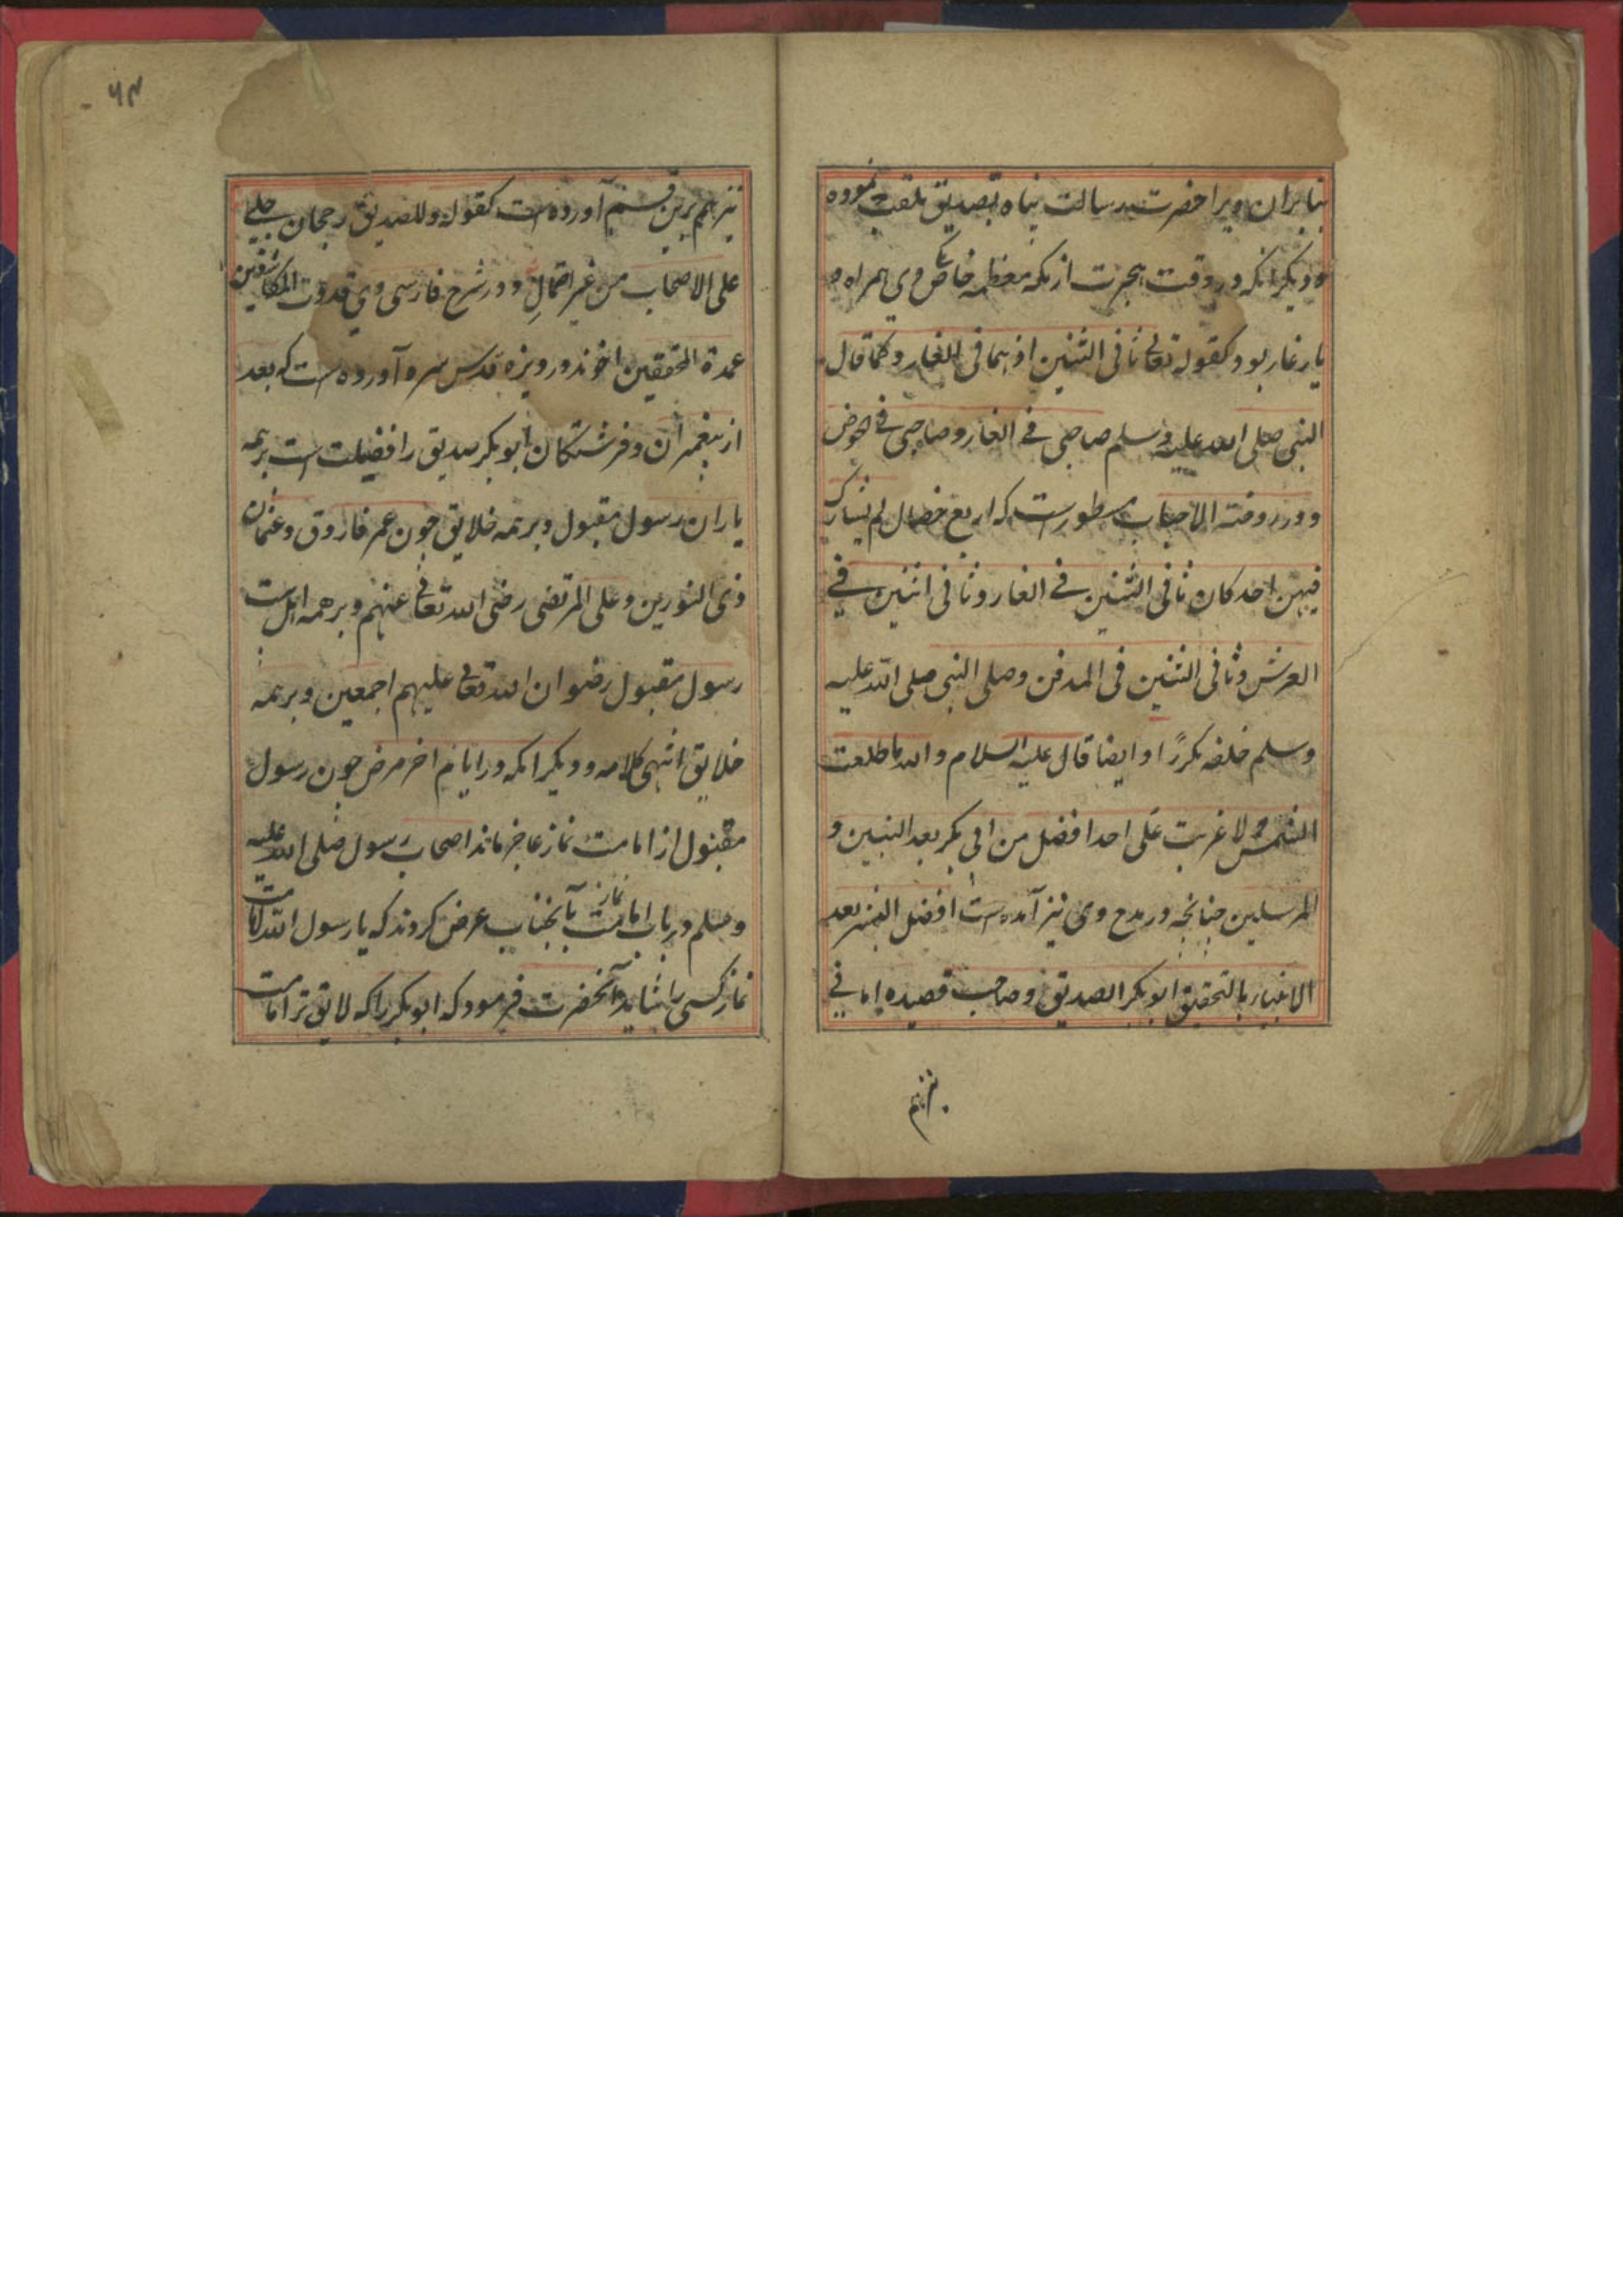 بنابران ویرا حضرت رسالت پناه بصدیق ملقب نموده
دیگر آنکه در وقت هجرت از مکه معظمه خاص وی همراه و
یار غار بود کقوله تعالی ثانی اثنین اذ هما فی الغار و کما قال
النبی صلی الله علیه وسلم صاحبی فی الغار وصاحبی فی الحوض
و در روضة الاحباب مسطورست که اربع خصال لم یشارک
فیهن احد کان ثانی اثنین فی الغار وثانی اثنین فی
العرش وثانی اثنین فی المدفن وصلی النبی صلی الله علیه
وسلم خلفه مکررًا و ایضا قال علیه السلام والله ما طلعت
الشمس ولا غربت علی احد افضل من ابی بکر بعد النبیین و
المرسلین چنانچه در مدح وی نیز آمده است افضل البشر بعد
الانبیاء بالتحقیق ابو بکر الصدیق وصاحب قصیده امالی
نیز هم
۶۴
نیز هم برین قسم آورده است کقوله وللصدیق رجحان جلی
علی الاصحاب من غیر احتمالِ و در شرح فارسی وی قدوت المکاشفین
عمدة المحققین اخوند درویزه قدس سره آورده است که بعد
از پیغمبران و فرشتکان ابو بکر صدیق را فضیلت است بر همه
یاران رسول مقبول و بر همه خلایق چون عمر فاروق و عثمان
ذی النورین و علی المرتضی رضی الله تعالی عنهم و بر همه
رسول مقبول رضوان الله تعالی علیهم اجمعین و بر همه
خلایق انتهی کلامه و دیگر انکه در ایام اخر مرض چون رسول
مقبول از امامت نماز عاجز ماند اصحاب رسول صلی الله علیه
وسلم در باب امامت نماز بآنجناب عرض کردند که یا رسول الله امامت
نماز کسی را شاید آنحضرت فرمود که ابو بکر را که لایق تر امامت